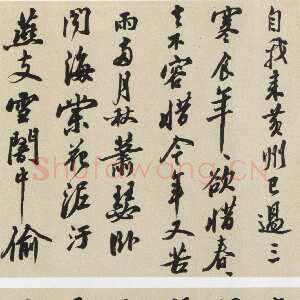 自我来黄州已過三
寒食年年欲惜春春
去不容惜今年又苦
雨兩月秋蕭瑟卧
聞海棠花泥汙
燕支雪闇中偷
Shufawang.CN